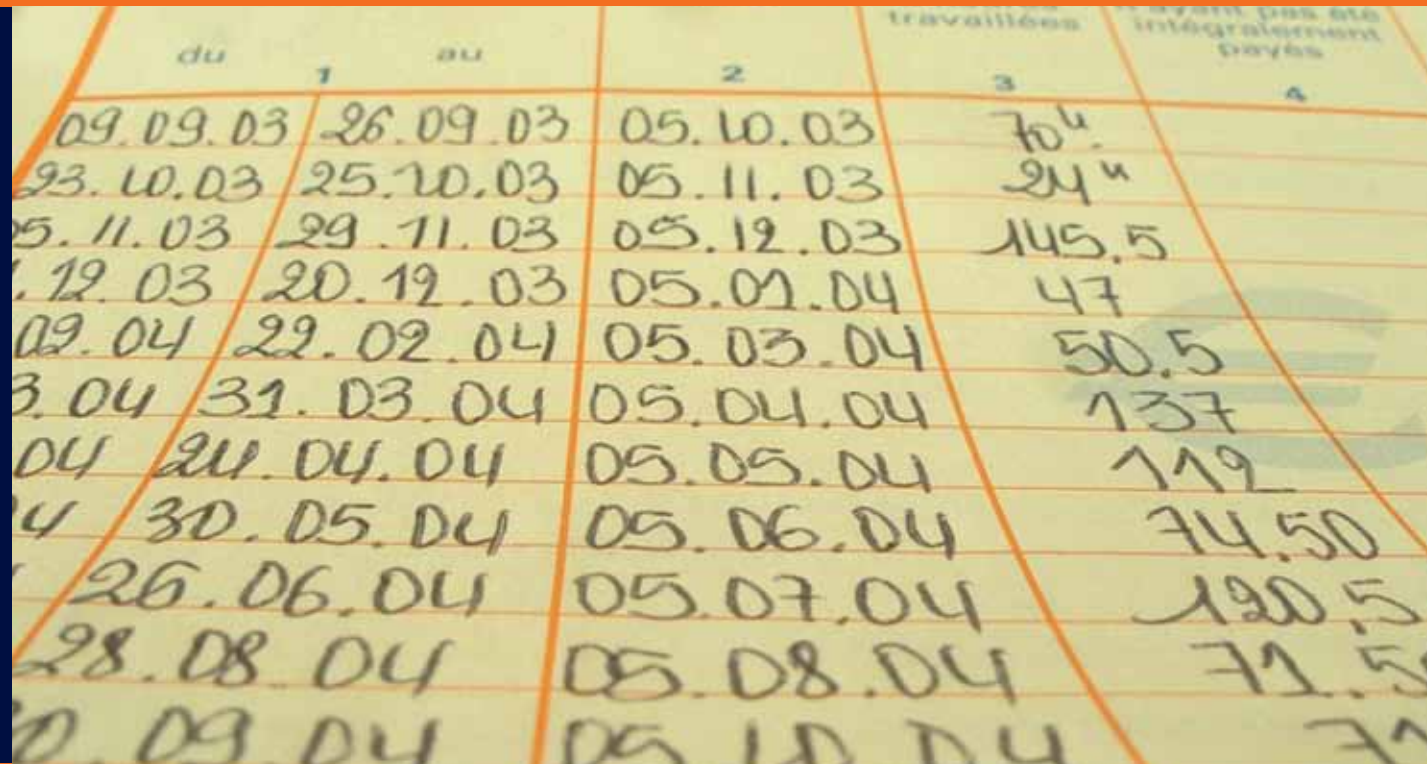 travaillées n'ayant pas été
intégralement
payés
du au
1 2 3 4
09.09.03 26.09.03 05.10.03 70h.
23.10.03 25.10.03 05.11.03 24h
5.11.03 29.11.03 05.12.03 145,5
.12.03 20.12.03 05.01.04 47
02.04 22.02.04 05.03.04 50,5
3.04 31.03.04 05.04.04 137
04 24.04.04 05.05.04 112
4 30.05.04 05.06.04 74,50
26.06.04 05.07.04 120,5
28.08.04 05.08.04 71,5
0.09.04 05 10 04 71